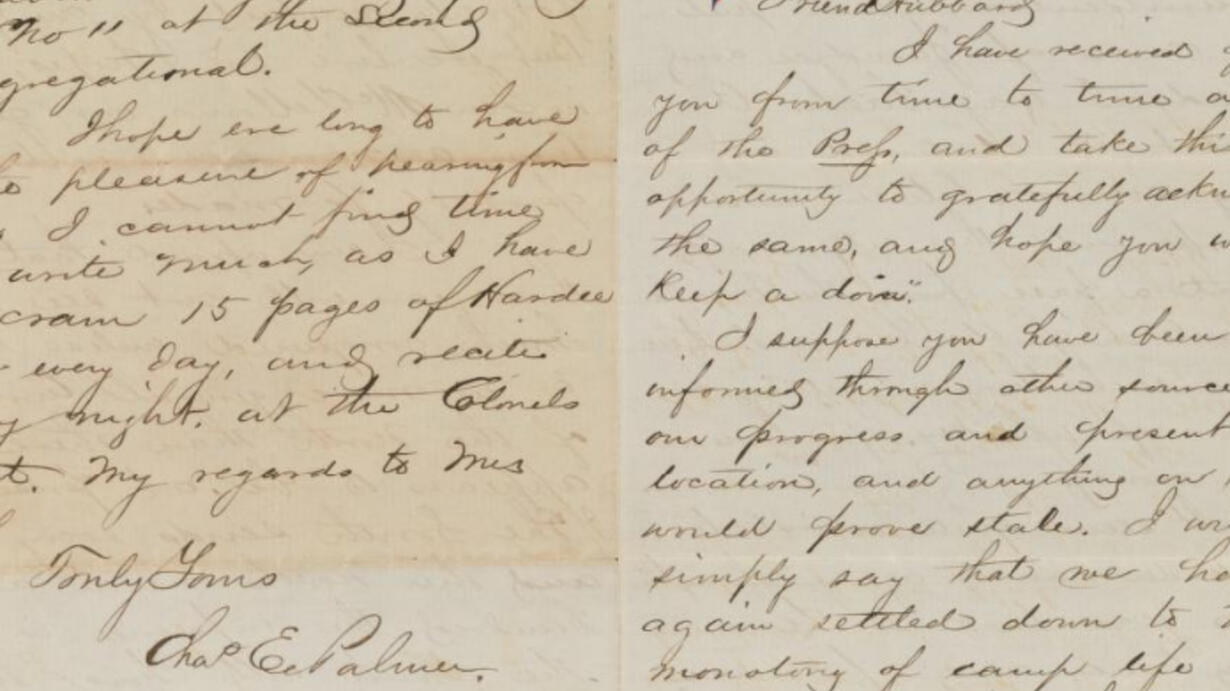 No 11 at the Second
gregational.
I hope ere long to have
pleasure of hearing from
I cannot find time
write much, as I have
cram 15 pages of Hardee
every day, and recite
night, at the Colonels
My regards to Mrs
Truly Yours
Chas E. Palmer.
Friend Hubbard
I have received
you from time to time
of the Press, and take thi
opportunity to gratefully ackn
the same, and hope you w
Keep a doin".
I suppose you have been
informed through other sourc
our progress and present
location, and anything on
would prove stale. I wo
simply say that we ha
again settled down to
monotony of camp life